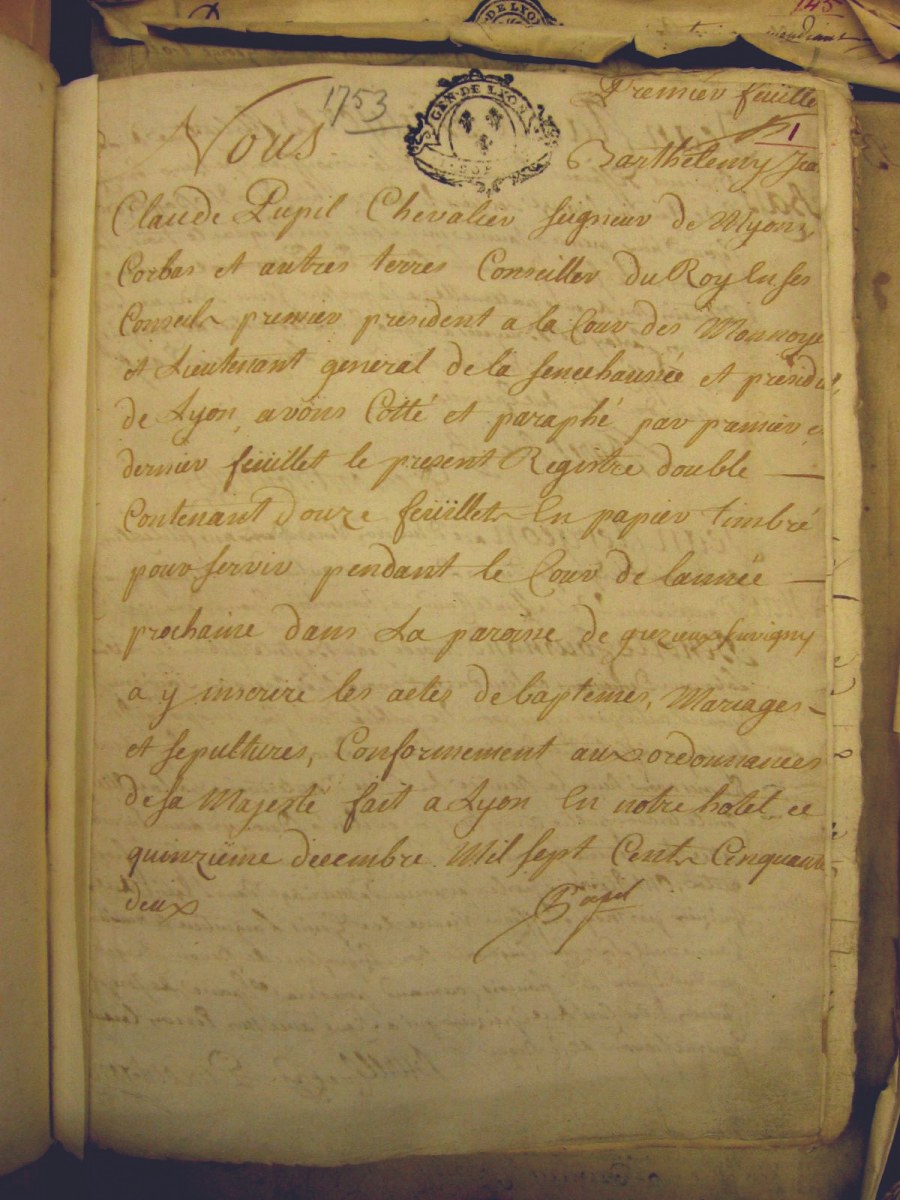 145
1753
GEN·DE LYON
Premier feuille
1
Nous Barthelemy Jea
Claude Pupil Chevalier seigneur de Myons
Corbas et autres terres Conseiller du Roy En ses
Conseils premier president a la Cour des Monnoye
et Lieutenant general de la senechaussée et presidial
de Lyon, avons Cotté et paraphé par premier et
dernier feuillet le present Registre double —
Contenant Douze feüillets En papier timbré
pour servir pendant le Cour de lannée —
prochaine dans La paroisse de grezieux souvigny
a y inscrire les actes de baptemes, Mariages –
et sepultures, Conformement aux ordonnances
de sa Majesté fait a Lyon En notre hotel ce
quinzieme decembre Mil sept Cents Cinquante
deux
Pupil